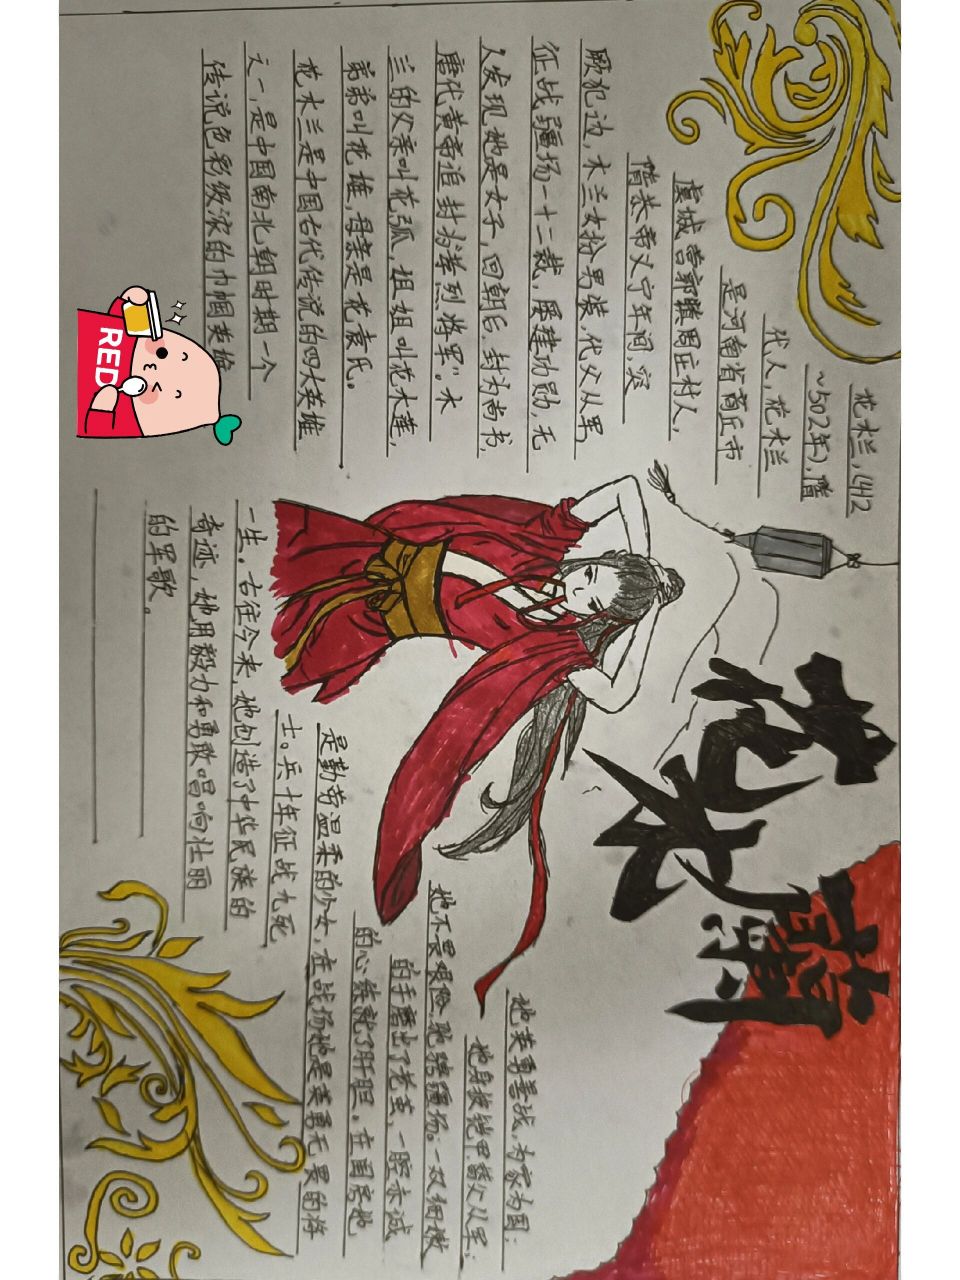 花木蘭
花木兰,(412
~502年),隋
代人,花木兰
是河南省商丘市
虞城营郭镇周庄村人,
隋恭帝义宁年间,突
厥犯边,木兰女扮男装,代父从军,
征战疆场一十二载,屡建功勋,无
人发现她是女子,回朝后,封为尚书,
唐代黄帝追封为"孝烈将军"。木
兰的父亲叫花弧,姐姐叫花木莲,
弟弟叫花雄,母亲是花袁氏。
花木兰是中国古代传说的四大英雄
之一,是中国南北朝时期一个
传说色彩极浓的巾帼英雄
她英勇善战,为家为国;
她身披铠甲,替父从军;
她不畏艰险,驰骋疆场;一双细嫩
的手磨出了老茧,一腔赤诚
的心练就了肝胆。在国家她
是勤劳温柔的少女,在战场她是英勇无畏的将
士。兵十年征战九死
一生。古往今来,她创造了中华民族的
奇迹,她用毅力和勇敢唱响壮丽
的军歌。
RED